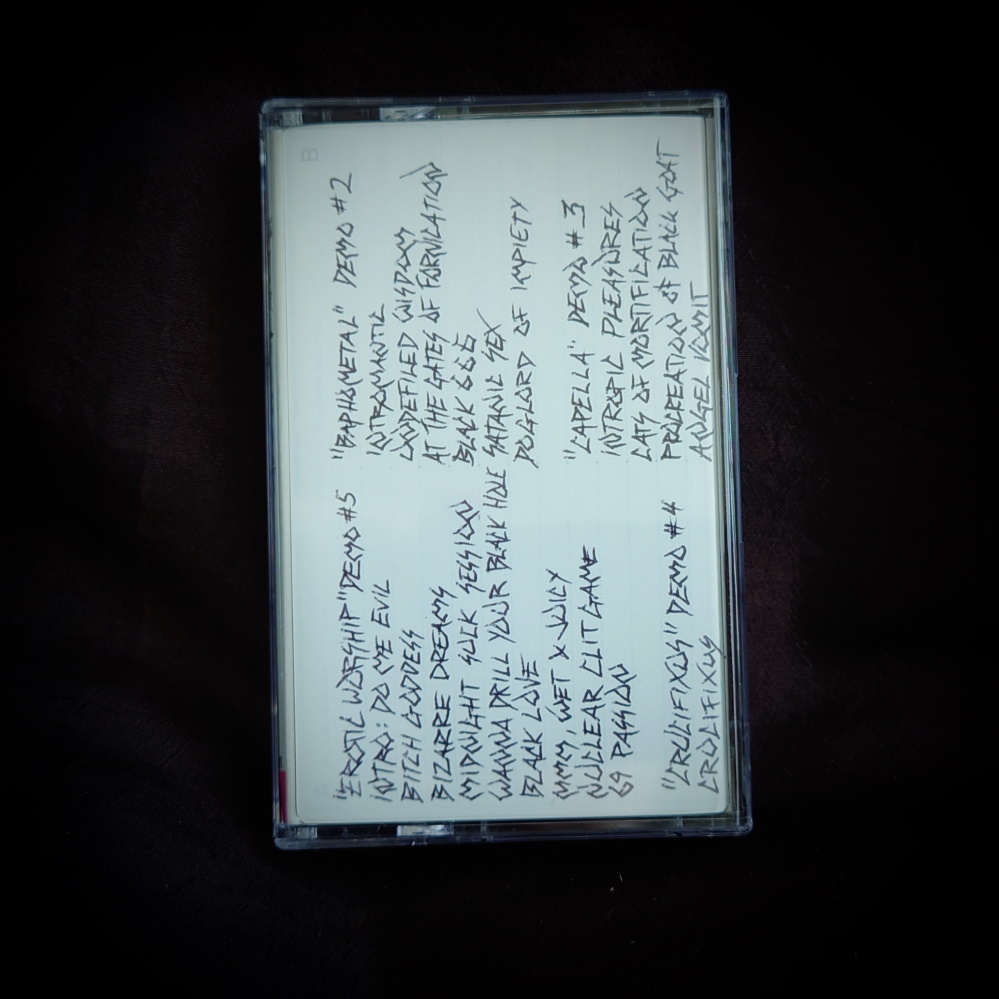 B
"EROTIC WORSHIP" DEMO #5
INTRO: DO ME EVIL
BITCH GODDESS
BIZARRE DREAMS
MIDNIGHT SUCK SESSION
WANNA DRILL YOUR BLACK HOLE
BLACK LOVE
MMM, WET X-JUICY
NUCLEAR CLIT GAME
69 PASSION
"CRUCIFIXUS" DEMO #4
CRUCIFIXUS
"BAPHOMETAL" DEMO #2
INTROMANTIC
UNDEFILED WISDOM
AT THE GATES OF FORNICATION
BLACK 666
SATANIC SEX
DOGLORD OF IMPIETY
"CAPELLA" DEMO #3
INTROPIC PLEASURES
CATS OF MORTIFICATION
PROCREATION OF BLACK GOAT
ANGEL VOMIT